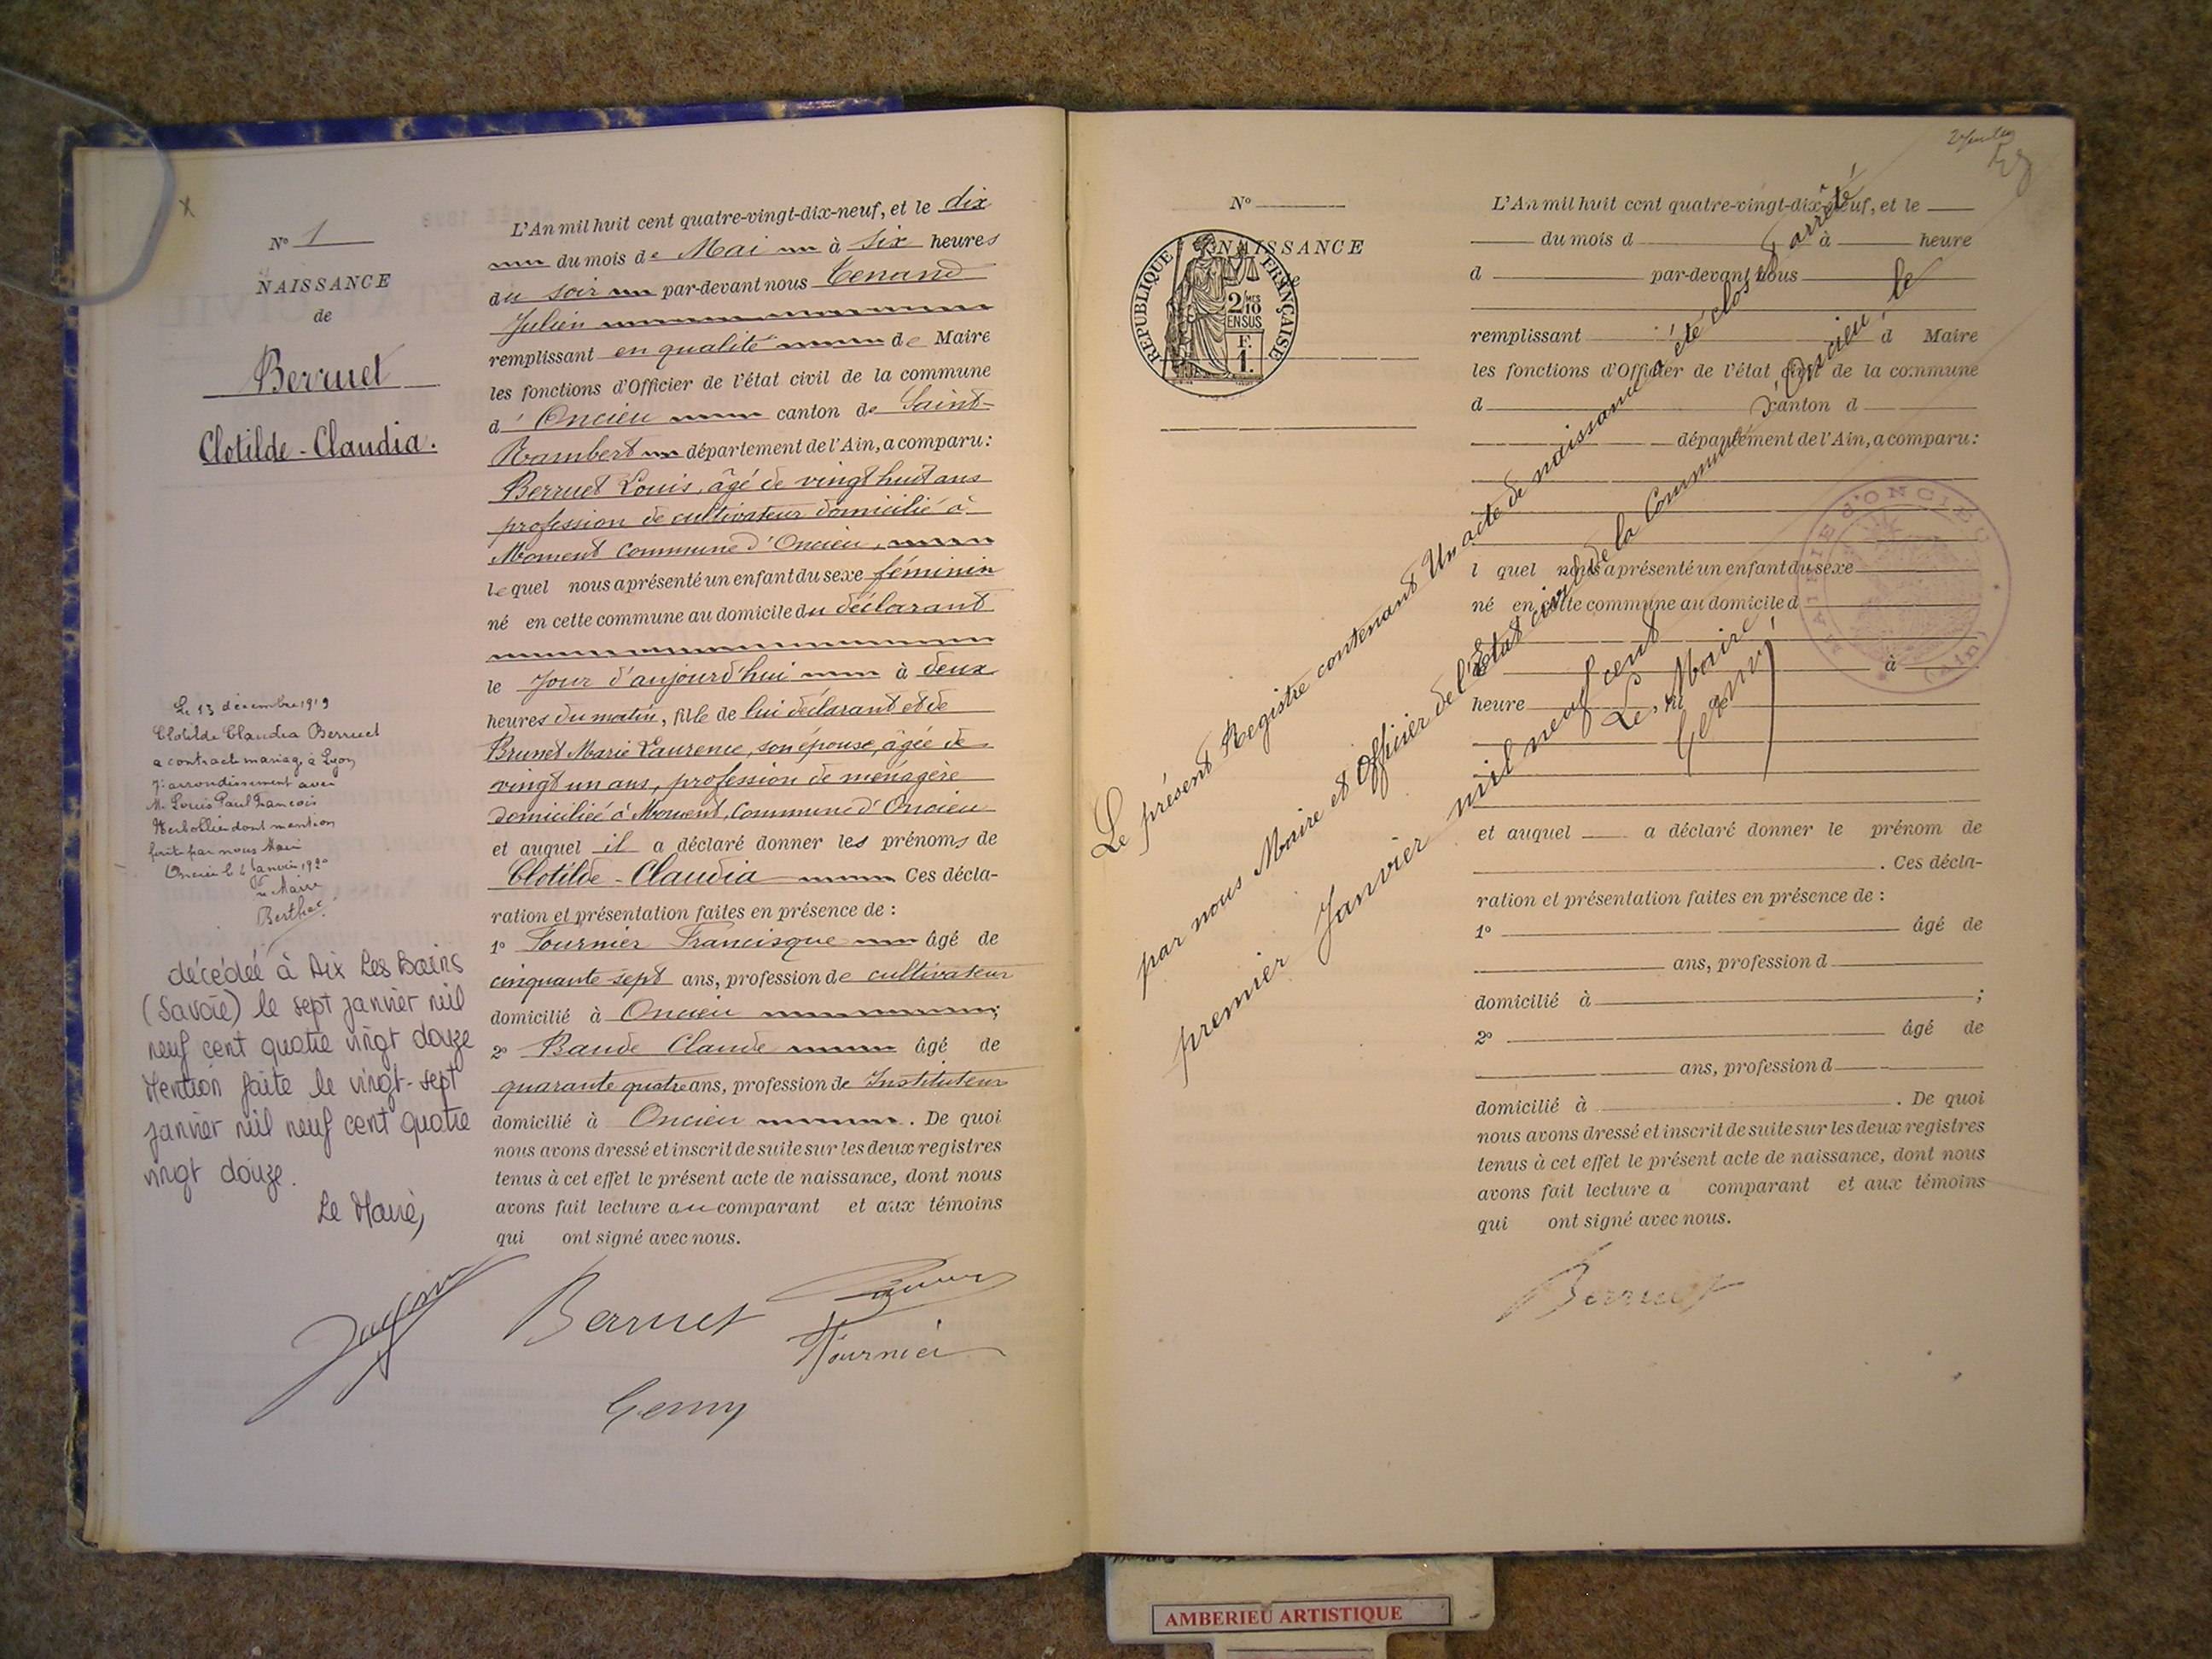 N° 1
NAISSANCE
de
Berruet
Clotilde-Claudia.
Le 13 décembre 1919
Clotilde Claudia Berruet
a contracté mariage à Lyon
7e arrondissement avec
M. Louis Paul François
dont mention
faite par nous Maire
Oncieu le 6 Janvier 1920
Le Maire
décédée à Aix Les Bains
(Savoie) le sept janvier mil
neuf cent quatre vingt douze
Mention faite le vingt-sept
janvier mil neuf cent quatre
vingt douze.
Le Maire,
L'An mil huit cent quatre-vingt-dix-neuf, et le dix
du mois de Mai à six heures
du soir par-devant nous Tenand
Julien
remplissant en qualité de Maire
les fonctions d'Officier de l'état civil de la commune
d'Oncieu canton de Saint-
Rambert département de l'Ain, a comparu:
Berruet Louis, âgé de vingt huit ans
profession de cultivateur domicilié à
Moment commune d'Oncieu,
lequel nous a présenté un enfant du sexe féminin
né en cette commune au domicile du déclarant
le Jour d'aujourd'hui à deux
heures du matin, fille de lui déclarant et de
Brunet Marie Laurence, son épouse, âgée de
vingt un ans, profession de ménagère
domiciliée à Moment, Commune d'Oncieu
et auquel il a déclaré donner les prénoms de
Clotilde-Claudia Ces décla-
ration et présentation faites en présence de :
1° Fournier Francisque âgé de
cinquante-sept ans, profession de cultivateur
domicilié à Oncieu ;
2° Baude Claude âgé de
quarante quatre ans, profession de Instituteur
domicilié à Oncieu . De quoi
nous avons dressé et inscrit de suite sur les deux registres
tenus à cet effet le présent acte de naissance, dont nous
avons fait lecture au comparant et aux témoins
qui ont signé avec nous.
Berruet
Fournier
N°
NAISSANCE
RÉPUBLIQUE FRANÇAISE
2/10 MES
EN SUS
F.
1.
L'An mil huit cent quatre-vingt-dix-neuf, et le
du mois d à heure
d par-devant nous
remplissant d Maire
les fonctions d'Officier de l'état civil de la commune
d canton d
département de l'Ain, a comparu:
l quel nous a présenté un enfant du sexe
né en cette commune au domicile d
le à
heure , fil de
et auquel a déclaré donner le prénom de
. Ces décla-
ration et présentation faites en présence de :
1° âgé de
ans, profession d
domicilié à ;
2° âgé de
ans, profession d
domicilié à . De quoi
nous avons dressé et inscrit de suite sur les deux registres
tenus à cet effet le présent acte de naissance, dont nous
avons fait lecture a comparant et aux témoins
qui ont signé avec nous.
Le présent Registre contenant Un acte de naissance a été clos et arrêté
par nous Maire et Officier de l'Etat civil de la Commune d'Oncieu, le
premier Janvier mil neuf cent
Le Maire,
MAIRIE D'ONCIEU (Ain)
AMBERIEU ARTISTIQUE